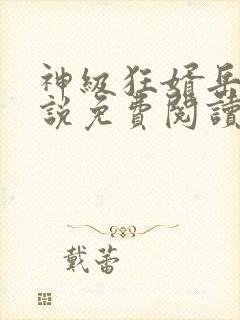 神級狂婿岳
說免費閱讀
戴蕾